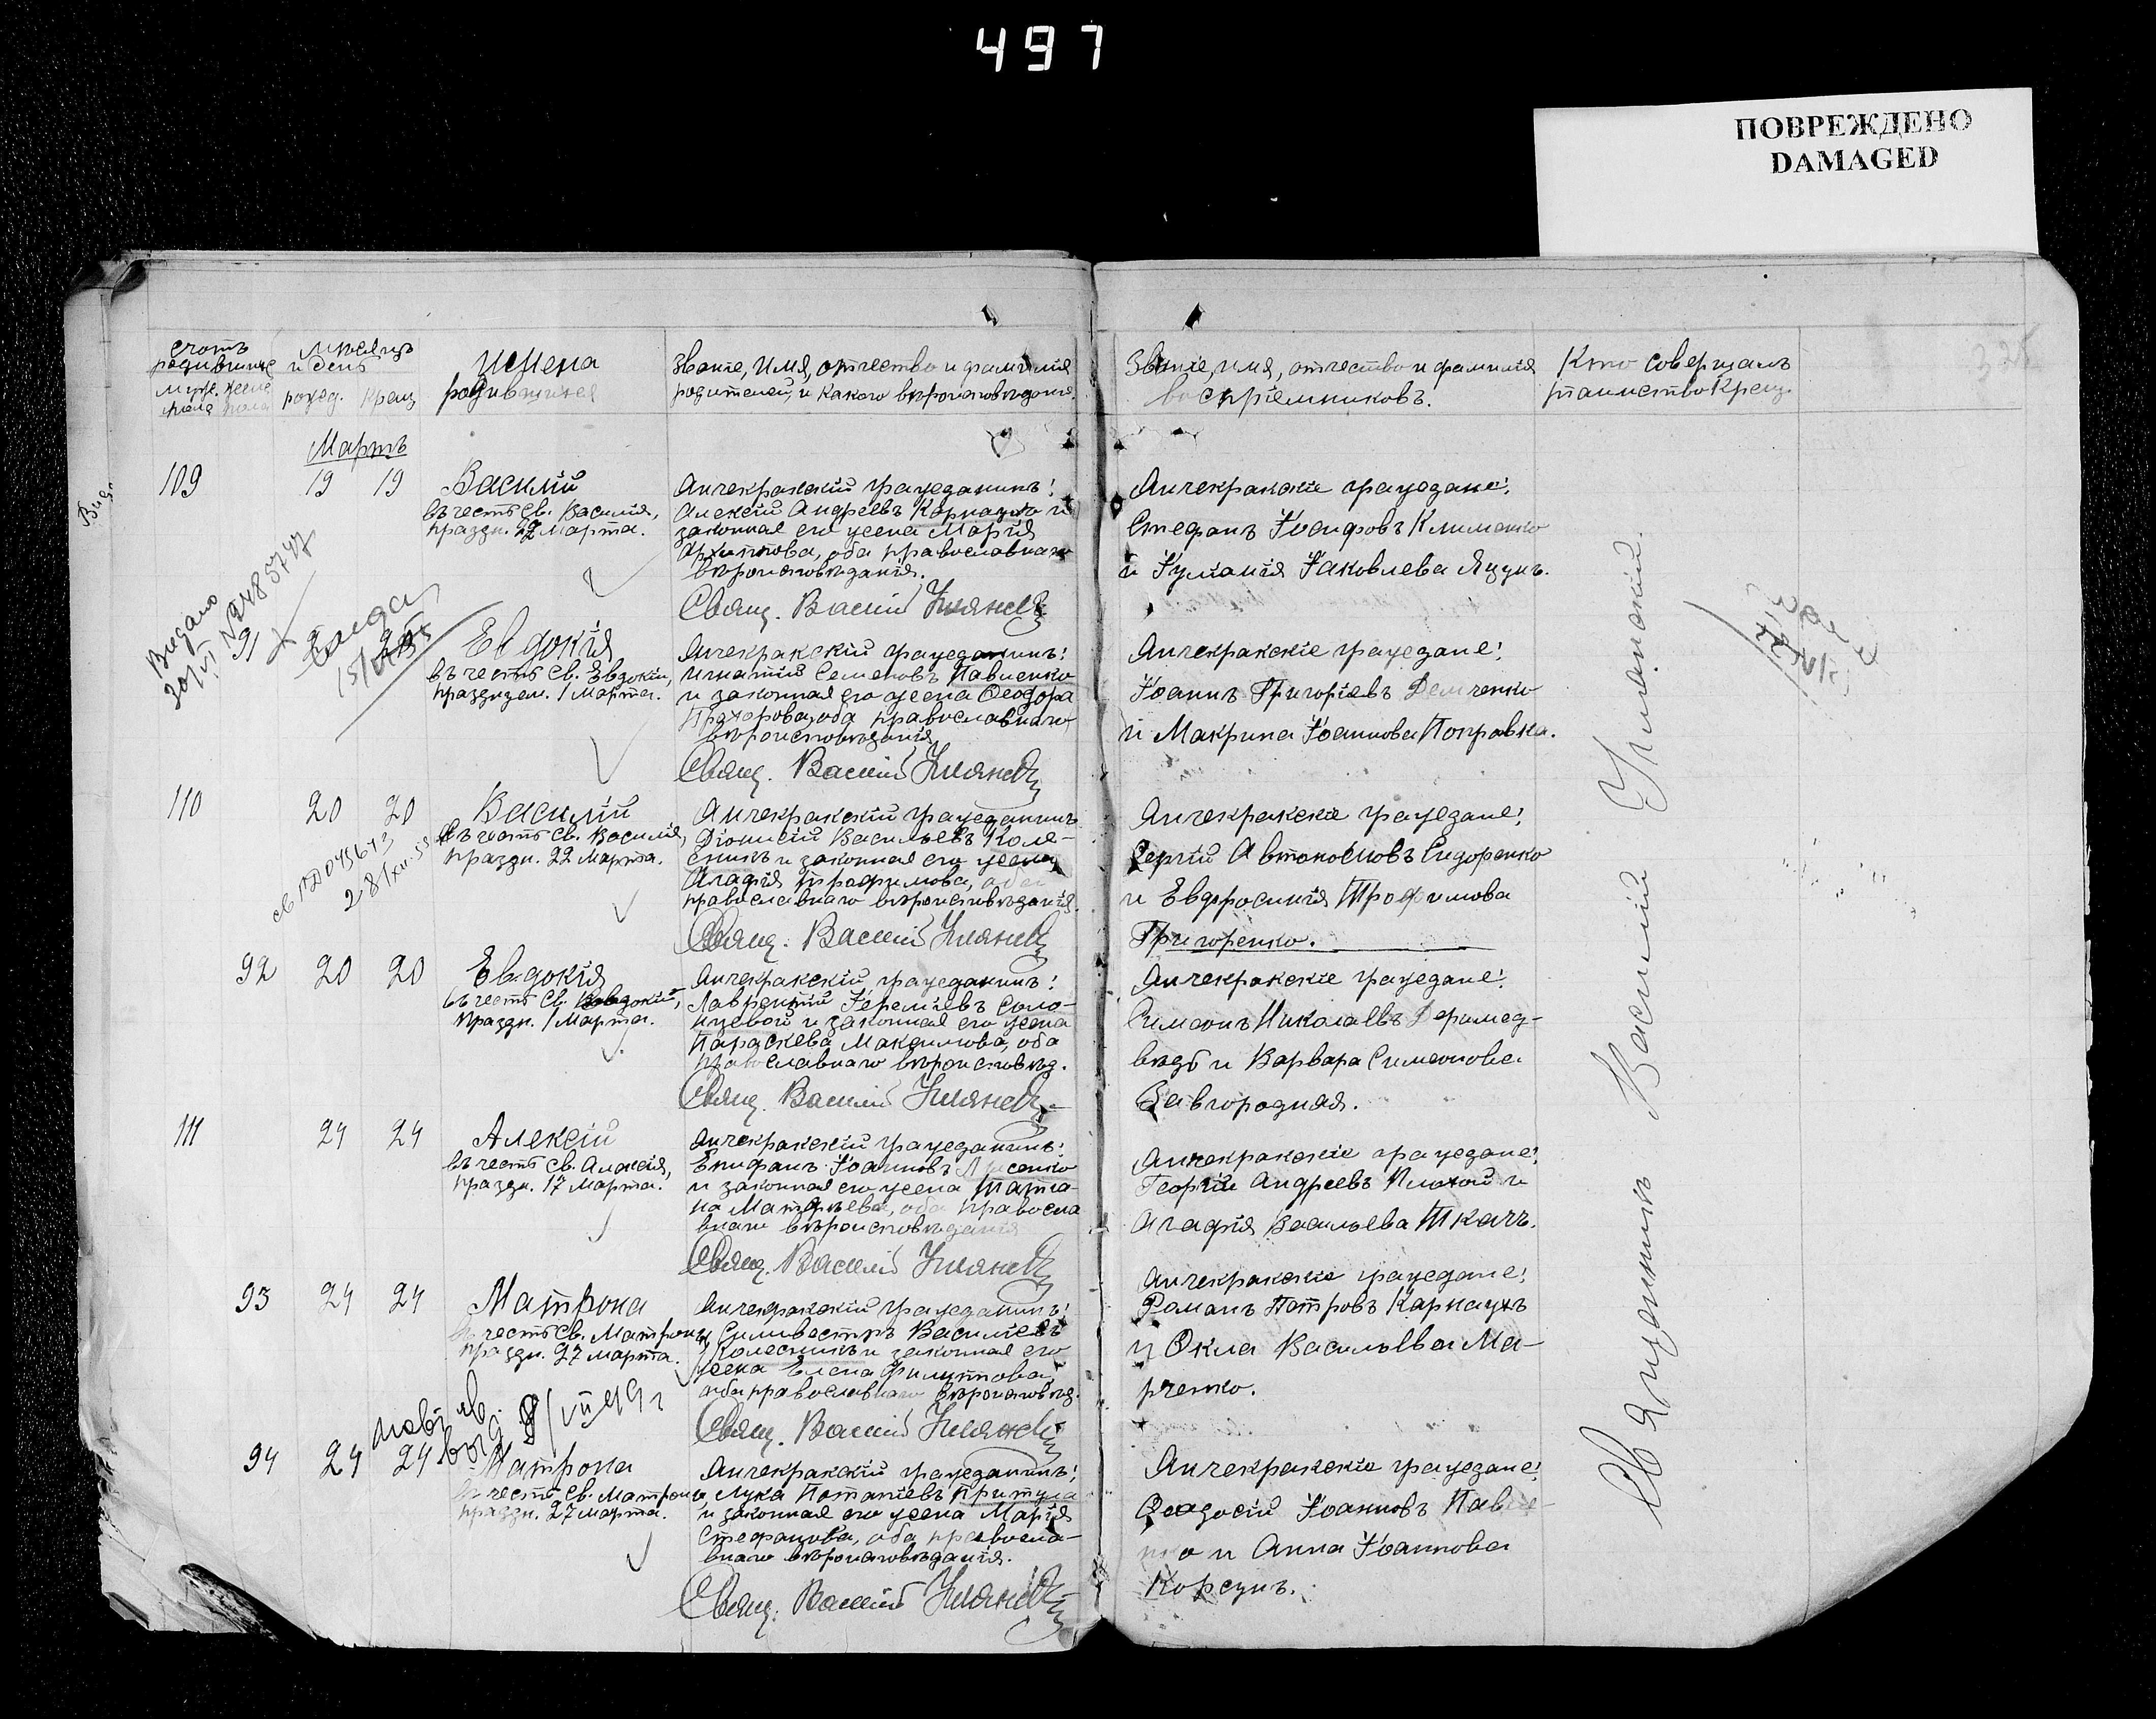 497
ПОВРЕЖДЕНО
DAMAGED
счотъ
родившихся
муж. жен.
пола пола
мѣсяцъ
и день
рожд. крещ.
имена
родившихся
Званіе, имя, отчество и фамилія
родителей, и какого вѣроисповѣданія
Званіе, имя, отчество и фамилія
воспріемниковъ.
Кто совершалъ
таинство Крещ.
Мартъ
109 19 19 Василій
въ честь Св. Василія,
праздн. 22 Марта.
Анчекракскій гражданинъ:
Алексій Андреевъ Карнаухо и
законная его жена Марія
Архипова, оба православнаго
вѣроисповѣданія.
Свящ. Василій
Анчекракскіе граждане:
Стефанъ Іосифовъ Клименко
и Іуліанія Іаковлева Яцунъ.
Видано
91
Евдокія
въ честь Св. Евдокіи,
празднуем. 1 Марта.
Анчекракскій гражданинъ:
Игнатій Семеновъ Павленко
и законная его жена Феодора
Прохорова, оба православнаго
вѣроисповѣданія
Свящ. Василій
Анчекракскіе граждане:
Іоаннъ Григоріевъ Демченко
и Макрина Іоаннова Поправка.
110 20 20 Василій
въ честь Св. Василія,
праздн. 22 Марта.
Анчекракскій гражданинъ
Діонисій Васильевъ Коле-
сникъ и законная его жена
Агафія Трофимова, оба
православнаго вѣроисповѣданія.
Свящ. Василій
Анчекракскіе граждане:
Сергій Автономовъ Сидоренко
и Евфросинія Трофимова
Григоренко.
92 20 20 Евдокія
въ честь Св. Евдокіи,
праздн. 1 Марта.
Анчекракскій гражданинъ:
Лаврентій Іереміевъ Соло-
нцевой и законная его жена
Параскева Максимова, оба
православнаго вѣроисповѣд.
Свящ. Василій
Анчекракскіе граждане:
Симеонъ Николаевъ Деримед-
вѣдь и Варвара Симеонова
Завгородняя.
111 24 24 Алексій
въ честь Св. Алексія,
праздн. 17 Марта.
Анчекракскій гражданинъ:
Епифанъ Іоанновъ Лисенко
и законная его жена Татіа-
на Матфѣева, оба правосла
внаго вѣроисповѣданія
Свящ. Василій
Анчекракскіе граждане:
Георгій Андреевъ Плохой и
Агафія Васильева Ткачъ.
93 24 24 Матрона
въ честь Св. Матроны
праздн. 27 марта.
Анчекракскій гражданинъ:
Сильвестръ Василіевъ
Колесникъ и законная его
жена Елена Филиппова,
оба православнаго вѣроисповѣд.
Свящ. Василій
Анчекракскіе граждане:
Романъ Петровъ Карнаухъ
и Фекла Васильева Ма-
рченко.
94 24 24 Матрона
въ честь Св. Матроны
праздн. 27 марта.
Анчекракскій гражданинъ:
Лука Потапіевъ Притула
и законная его жена Марія
Стефанова, оба правосла-
внаго вѣроисповѣданія.
Свящ. Василій
Анчекракскіе граждане:
Феодосій Іоанновъ Павле-
нко и Анна Іоаннова
Корсунъ.
Священникъ Василій